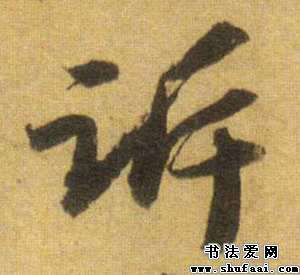 诉
书法爱网
www.shufaai.com